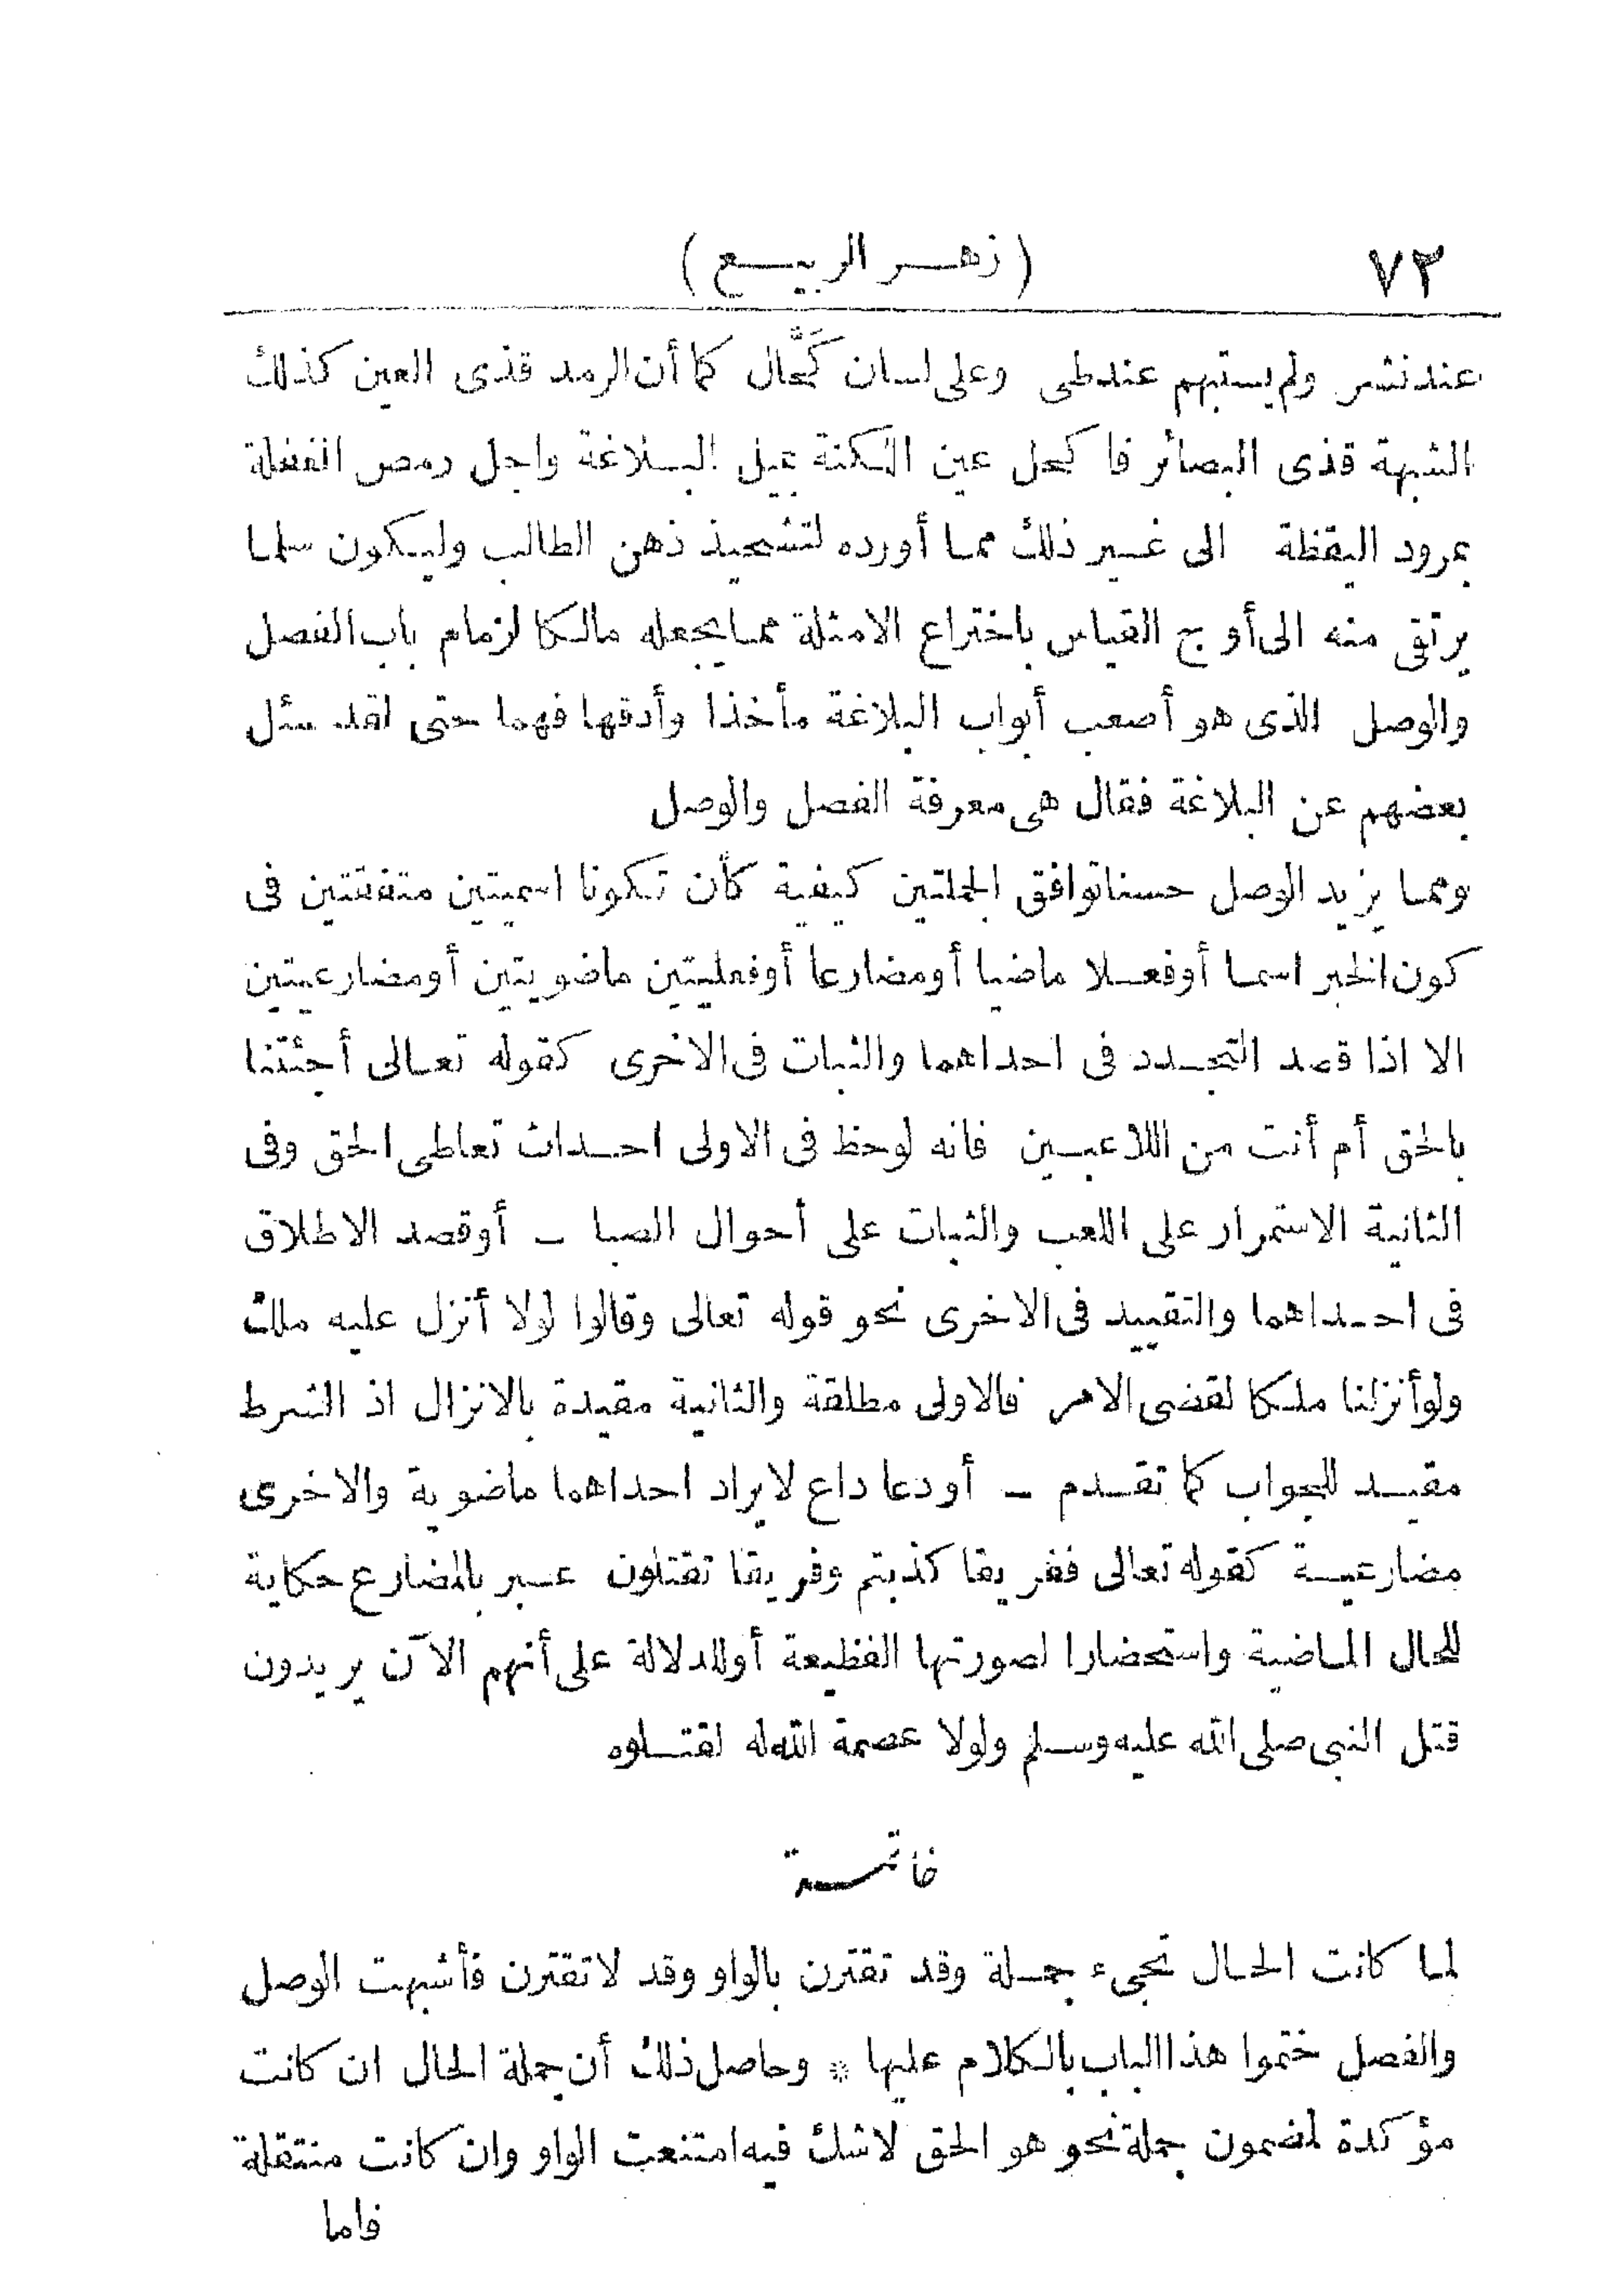 ٧٢ (زهر الربيع)
عند نشر ولم يستبهم عند طى وعلى لسان كَحَّال كما أن الرمد قذى العين كذلك
الشبهة قذى البصائر فا كحل عين اللكنة بميل البلاغة واجل رمص الغفلة
بمرود اليقظة الى غير ذلك مما أورده لتشحيذ ذهن الطالب وليكون سلما
يرتقى منه الى أوج القياس باختراع الامثلة مما يجعله مالكا لزمام باب الفصل
والوصل الذى هو أصعب أبواب البلاغة مأخذا وأدقها فهما حتى لقد سئل
بعضهم عن البلاغة فقال هى معرفة الفصل والوصل
ومما يزيد الوصل حسنا توافق الجملتين كيفية كأن تكونا اسميتين متفقتين فى
كون الخبر اسما أو فعلا ماضيا أو مضارعا أو فعليتين ماضويتين أو مضارعيتين
الا اذا قصد التجدد فى احداهما والثبات فى الاخرى كقوله تعالى أجئتنا
بالحق أم أنت من اللاعبين فانه لوحظ فى الاولى احداث تعاطى الحق وفى
الثانية الاستمرار على اللعب والثبات على أحوال الصبا ـ أو قصد الاطلاق
فى احداهما والتقييد فى الاخرى نحو قوله تعالى وقالوا لولا أنزل عليه ملك
ولو أنزلنا ملكا لقضى الامر فالاولى مطلقة والثانية مقيدة بالانزال اذ الشرط
مقيد للجواب كما تقدم ـ أو دعا داع لايراد احداهما ماضوية والاخرى
مضارعية كقوله تعالى ففريقا كذبتم وفريقا تقتلون عبر بالمضارع حكاية
للحال الماضية واستحضارا لصورتها الفظيعة أو للدلالة على أنهم الآن يريدون
قتل النبى صلى الله عليه وسلم ولولا عصمة الله له لقتلوه
خاتمة
لما كانت الحال تجىء جملة وقد تقترن بالواو وقد لا تقترن فأشبهت الوصل
والفصل ختموا هذا الباب بالكلام عليها * وحاصل ذلك أن جملة الحال ان كانت
مؤكدة لمضمون جملة نحو هو الحق لا شك فيه امتنعت الواو وان كانت منتقلة
فاما